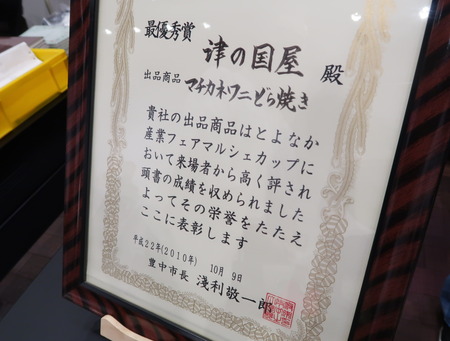 最優秀賞
津の国屋 殿
出品商品 マチカネワニどら焼き
貴社の出品商品はとよなか
産業フェアマルシェカップに
おいて来場者から高く評され
頭書の成績を収められました
よってその栄誉をたたえ
ここに表彰します
平成22年(2010年) 10月 9日
豊中市長 淺利敬一郎